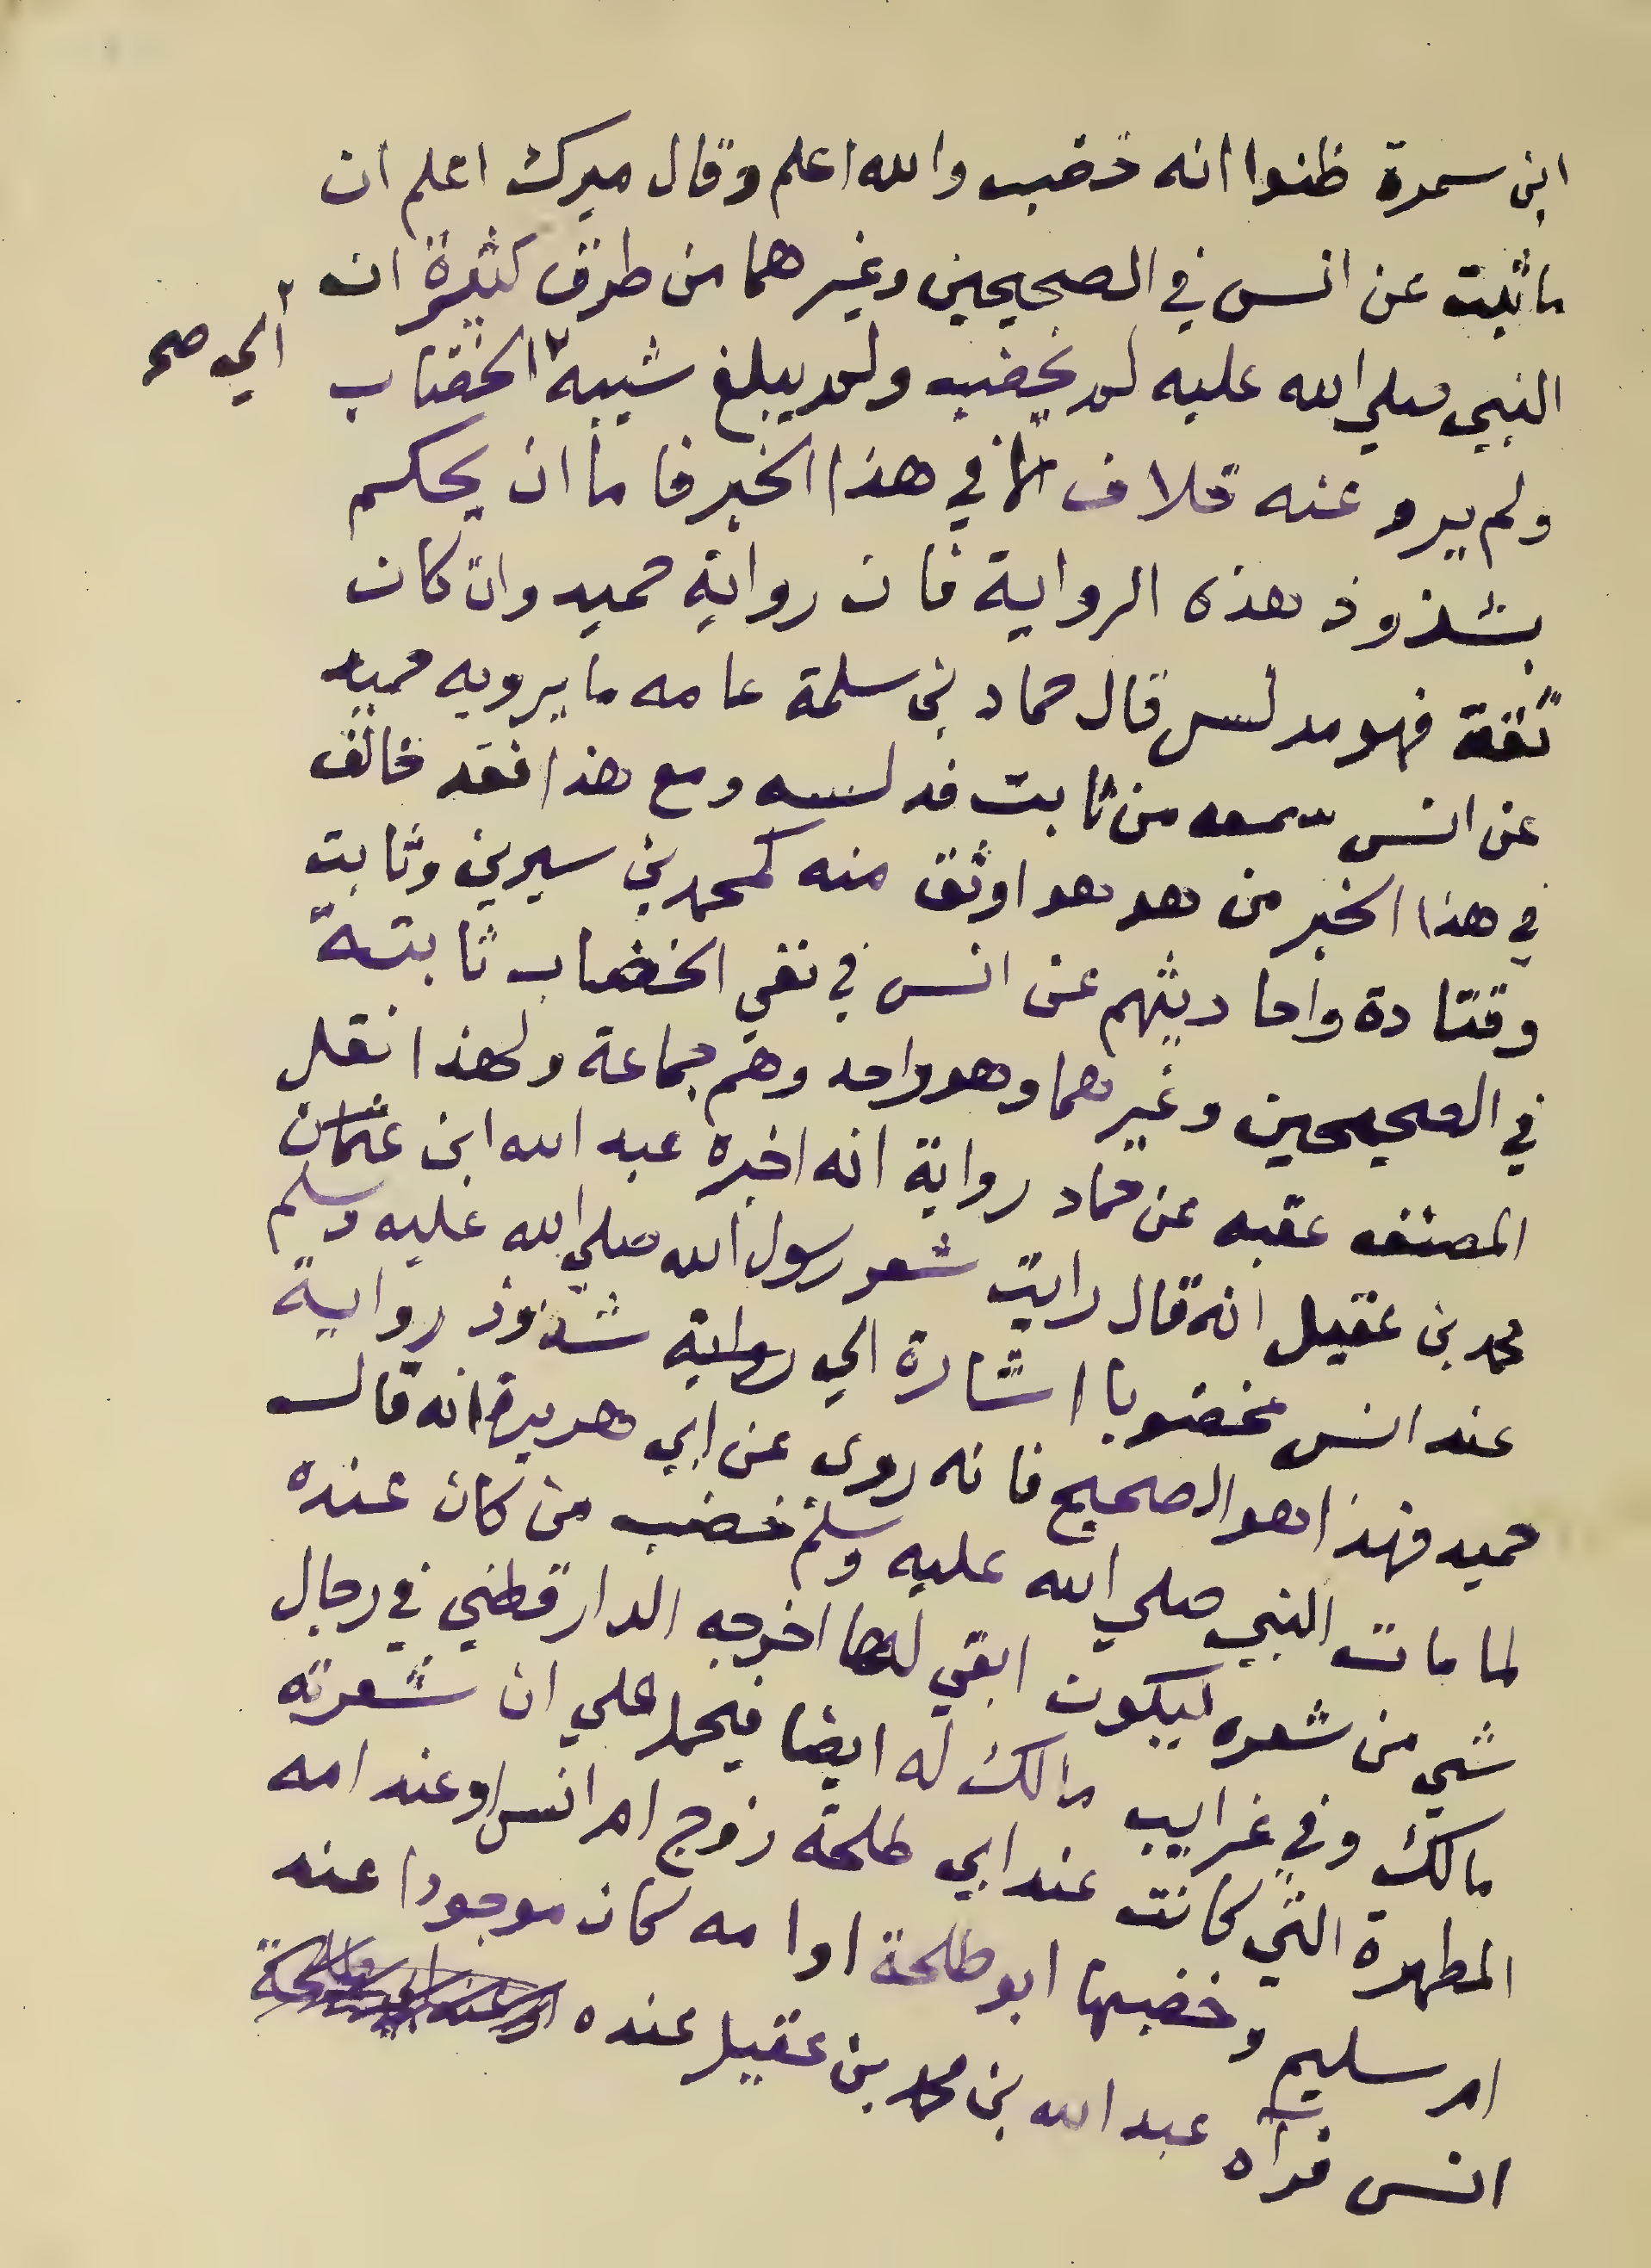 ابن سمرة ظنوا انه خضب والله اعلم وقال ميرك اعلم ان
ما ثبت عن انس في الصحيحين وغيرهما من طرق كثيرة ان
النبي صلي الله عليه لم يخضب ولم يبلغ شيبه الخضاب
الي صح
ولم يرو عنه خلاف الا في هذا الخبر فاما ان يحكم
بشذوذ هذه الرواية فان رواية حميد وان كان
ثقة فهو مدلس قال حماد بن سلمة عامه ما يرويه حميد
عن انس سمعه من ثابت فدلسه ومع هذا فقد خالف
في هذا الخبر من هو هو اوثق منه كمحمد بن سيرين وثابت
وقتادة واحاديثهم عن انس في نفي الخضاب ثابتة
في الصحيحين وغيرهما وهو واحد وهم جماعة ولهذا نقل
المصنف عقبه عن حماد رواية انه اخبره عبد الله ابن عثمان
محمد بن عقيل انه قال رايت شعر رسول الله صلي الله عليه وسلم
عند انس مخضوبا اشارة الي رواية شذوذ رواية
حميد فهذا هو الصحيح فانه روى عن ابي هريرة انه قال
لما مات النبي صلي الله عليه وسلم خضب من كان عنده
شي من شعره ليكون ابقي لها اخرجه الدارقطني في رجال
مالك وفي غرايب مالك له ايضا فيحمل علي ان شعرته
المطهرة التي كانت عند ابي طلحة زوج ام انس او عند امه
ام سليم وخضبها ابو طلحة او امه كان موجودا عند
انس فرآه عبد الله بن محمد بن عقيل عنده او عند ابي طلحة